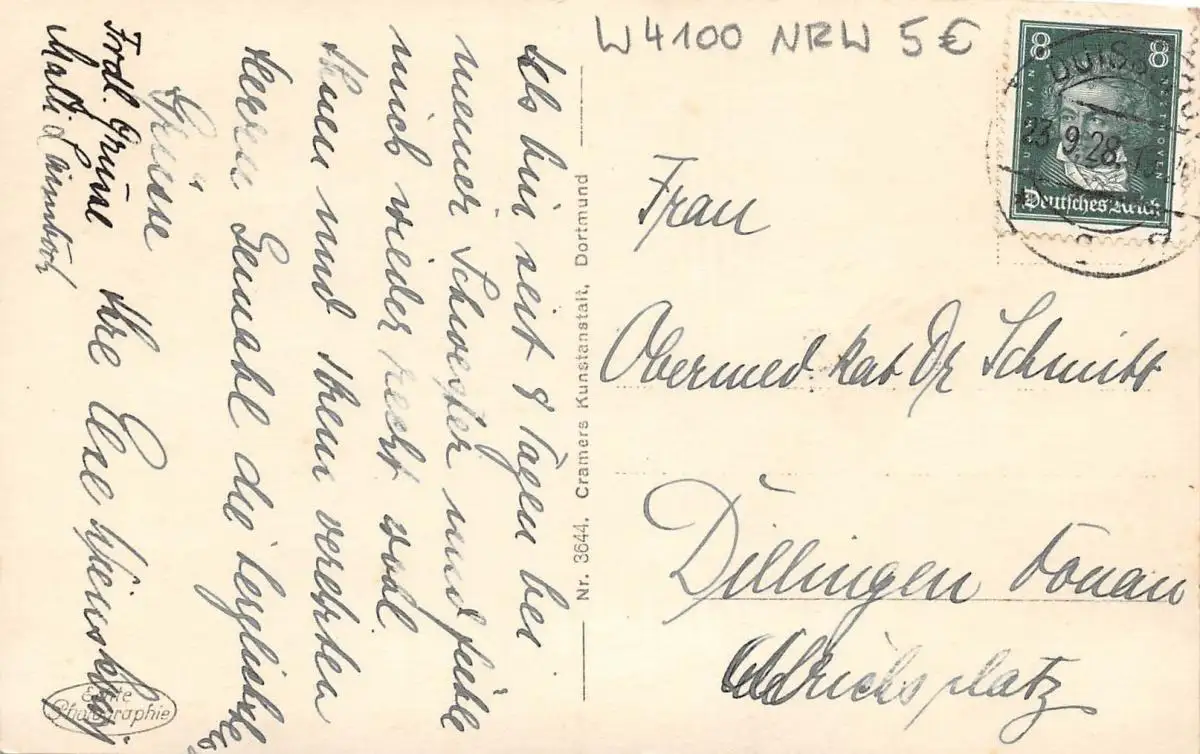 W4100 NRW 5 €
8 8
LUDWIG VAN BEETHOVEN
Deutsches Reich
DUISBURG
23.9.28.
Frau
Obermed. Rat Dr Schmitt
Dillingen Donau
Ulrichsplatz
Nr. 3644. Cramers Kunstanstalt, Dortmund
Echte
Photographie
Ich bin seit 8 Tagen bei
meiner Schwester und fühle
mich wieder recht wohl
Ihnen und Ihrem verehrten
Herrn Gemahl die herzlichste
Grüsse
Ihre
Frdl. Grüsse